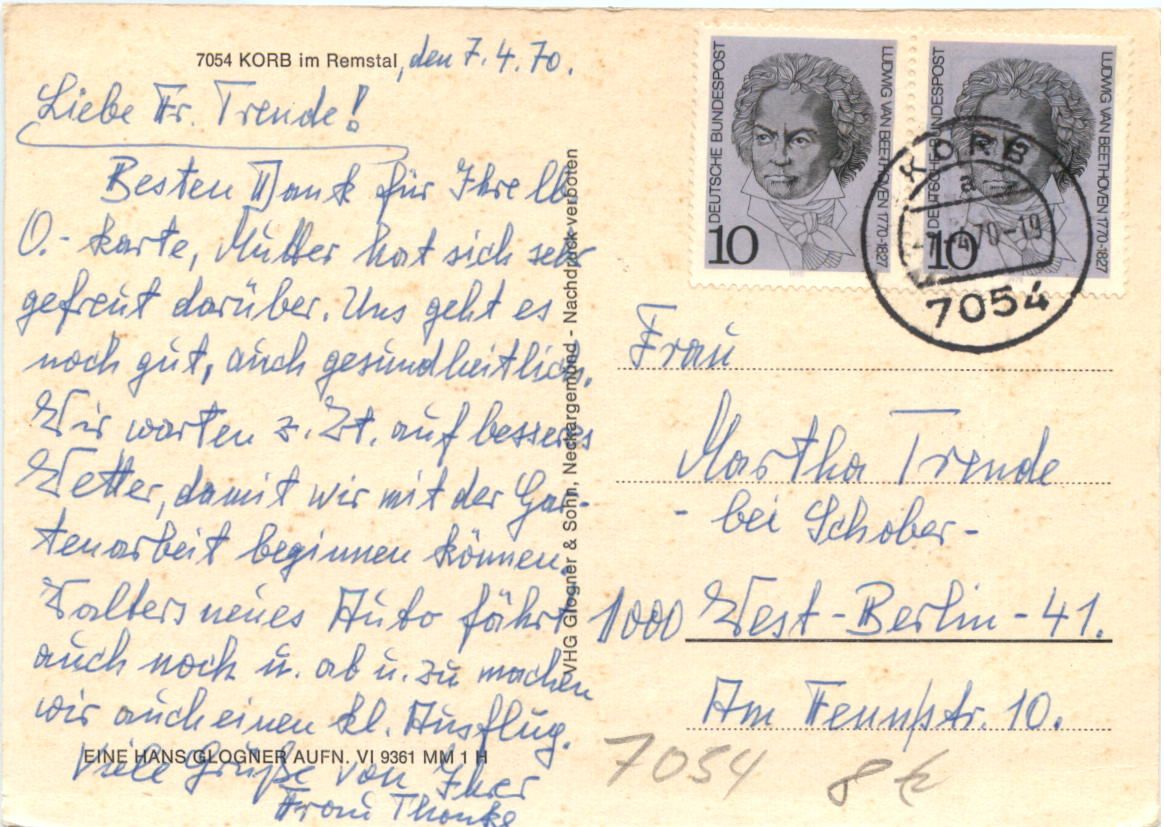 7054 KORB im Remstal, den 7.4.70.
Liebe Fr. Trende!
Besten Dank für Ihre lb.
O.-karte, Mutter hat sich sehr
gefreut darüber. Uns geht es
noch gut, auch gesundheitlich.
Wir warten z. Zt. auf besseres
Wetter, damit wir mit der Gar-
tenarbeit beginnen können.
Walters neues Auto fährt
auch noch u. ab u. zu machen
wir auch einen kl. Ausflug.
EINE HANS GLOGNER AUFN. VI 9361 MM 1 H
Viele Grüße von Ihrer
Frau Thonke
VHG Glogner & Sohn, Neckargemünd - Nachdruck verboten
DEUTSCHE BUNDESPOST
LUDWIG VAN BEETHOVEN 1770-1827
10
DEUTSCHE BUNDESPOST
LUDWIG VAN BEETHOVEN 1770-1827
10
KORB
a
4.70-19
7054
Frau
Martha Trende
- bei Schober -
1000 West-Berlin-41.
Am Fennpstr. 10.
7054